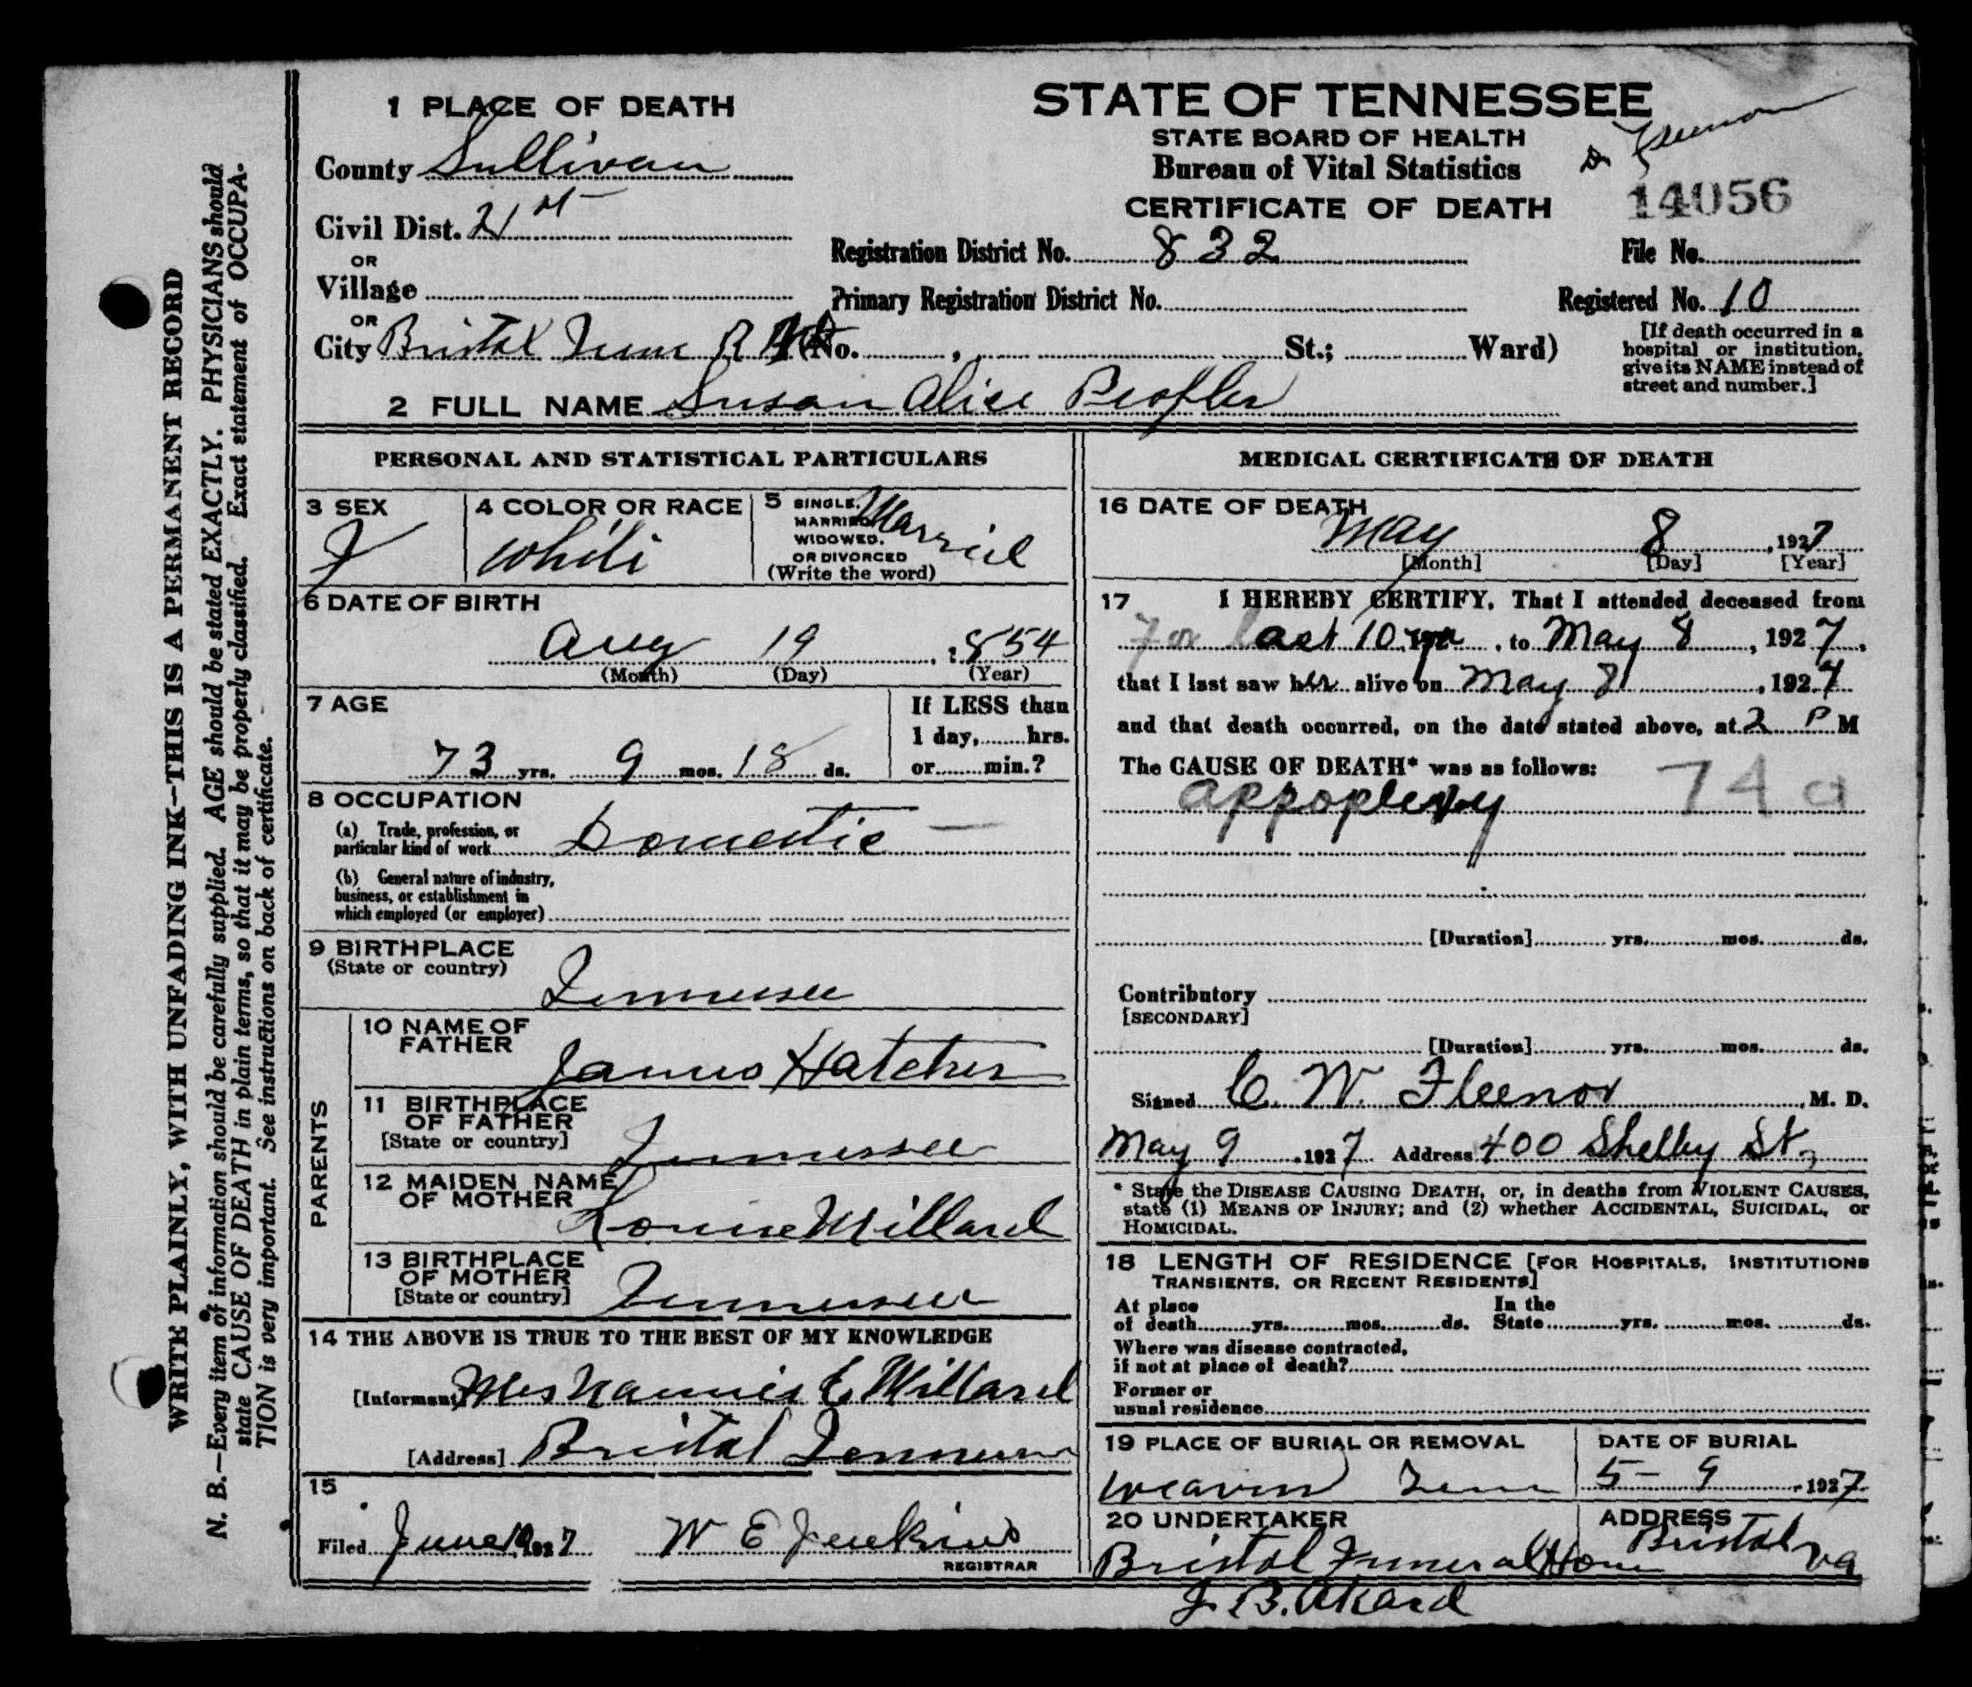 WRITE PLAINLY, WITH UNFADING INK—THIS IS A PERMANENT RECORD
N. B.—Every item of information should be carefully supplied. AGE should be stated EXACTLY. PHYSICIANS should
state CAUSE OF DEATH in plain terms, so that it may be properly classified. Exact statement of OCCUPA-
TION is very important. See instructions on back of certificate.
1 PLACE OF DEATH
County Sullivan
Civil Dist. 21st
OR
Village
OR
City Bristol Tenn R (No. , St.; Ward)
2 FULL NAME Susan Alice Peofler
STATE OF TENNESSEE
STATE BOARD OF HEALTH
Bureau of Vital Statistics
CERTIFICATE OF DEATH
Dr Fleenor
14056
Registration District No. 832
File No.
Primary Registration District No.
Registered No. 10
[If death occurred in a
hospital or institution,
give its NAME instead of
street and number.]
PERSONAL AND STATISTICAL PARTICULARS
3 SEX
F
4 COLOR OR RACE
White
5 SINGLE,
MARRIED,
WIDOWED,
OR DIVORCED
(Write the word)
Married
6 DATE OF BIRTH
Aug 19, 1854
(Month) (Day) (Year)
7 AGE
73 yrs. 9 mos. 18 ds.
If LESS than
1 day, hrs.
or min.?
8 OCCUPATION
(a) Trade, profession, or
particular kind of work Domestic
(b) General nature of industry,
business, or establishment in
which employed (or employer)
9 BIRTHPLACE
(State or country)
Tennessee
PARENTS
10 NAME OF
FATHER
James Hatcher
11 BIRTHPLACE
OF FATHER
[State or country]
Tennessee
12 MAIDEN NAME
OF MOTHER
Louise Millard
13 BIRTHPLACE
OF MOTHER
[State or country]
Tennessee
14 THE ABOVE IS TRUE TO THE BEST OF MY KNOWLEDGE
[Informant] Mrs Nannie E Millard
[Address] Bristol Tennessee
15
Filed June 10, 1927 W E Jenkins
REGISTRAR
MEDICAL CERTIFICATE OF DEATH
16 DATE OF DEATH
May 8, 1927
[Month] [Day] [Year]
17 I HEREBY CERTIFY, That I attended deceased from
For last 10 yr, to May 8, 1927,
that I last saw her alive on May 8, 1927
and that death occurred, on the date stated above, at 2 P M
The CAUSE OF DEATH* was as follows:
appoplexy 74 a
[Duration] yrs. mos. ds.
Contributory
[SECONDARY]
[Duration] yrs. mos. ds.
Signed C. W. Fleenor, M. D.
May 9, 1927 Address 400 Shelby St,
* State the DISEASE CAUSING DEATH, or, in deaths from VIOLENT CAUSES,
state (1) MEANS OF INJURY; and (2) whether ACCIDENTAL, SUICIDAL, or
HOMICIDAL.
18 LENGTH OF RESIDENCE [FOR HOSPITALS, INSTITUTIONS
TRANSIENTS, OR RECENT RESIDENTS]
At place
of death yrs. mos. ds.
In the
State yrs. mos. ds.
Where was disease contracted,
if not at place of death?
Former or
usual residence
19 PLACE OF BURIAL OR REMOVAL
Weaver Tenn
DATE OF BURIAL
5-9, 1927
20 UNDERTAKER
Bristol Funeral Home
J. B. Akard
ADDRESS
Bristol Va